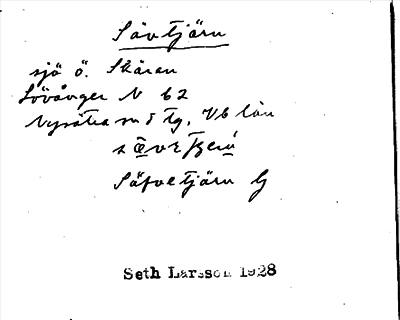 Sävtjärn
sjö ö. Skåran
Lövånger N 62
Nysätra sn o tg. Vb län
Säfvetjärn G
Seth Larsson 1928